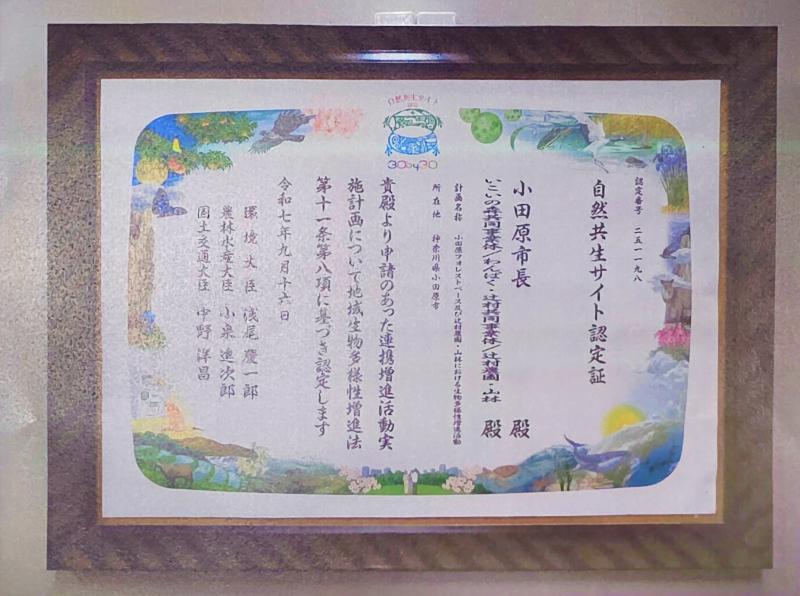 自然共生サイト
30by30
認定番号 二五一一九八
自然共生サイト認定証
小田原市長 殿
いこいの森共同事業体/わんぱく・辻村共同事業体/辻村農園・山林 殿
計画名称 小田原フォレストベース及び辻村農園・山林における生物多様性増進活動
所在地 神奈川県小田原市
貴殿より申請のあった連携増進活動実
施計画について地域生物多様性増進法
第十一条第八項に基づき認定します
令和七年九月十六日
環境大臣 浅尾慶一郎
農林水産大臣 小泉進次郎
国土交通大臣 中野洋昌